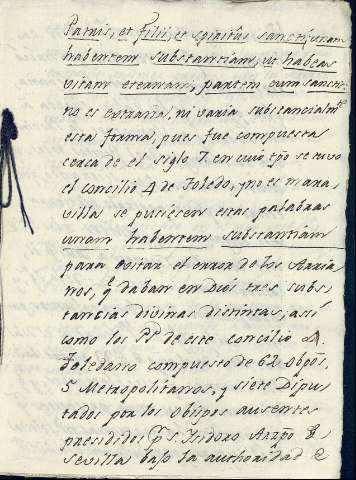 Patris, et Filii, et spiritûs sancti, unam
habentem substantiam, ut habeas
vitam eternam, partem cum sanctis
no es extraña, ni varia substancialmte
esta forma, pues fue compuesta
cerca de el siglo 7. en cuio tpo se tuvo
el concilio 4 de Toledo, y no es mara
villa se pusiesen estas palabras
unam habentem substantiam
para evitar el error de los Arria
nos, q daban en Dios tres subs
tancias divinas distintas, así
como los PP. de este concilio 4.
Toledano compuesto de 62 obpos,
5 Metropolitanos, y siete Dipu
tados por los obispos ausentes
presididos pr S. Isidoro Arzpo de
Sevilla bajo la authoridad de